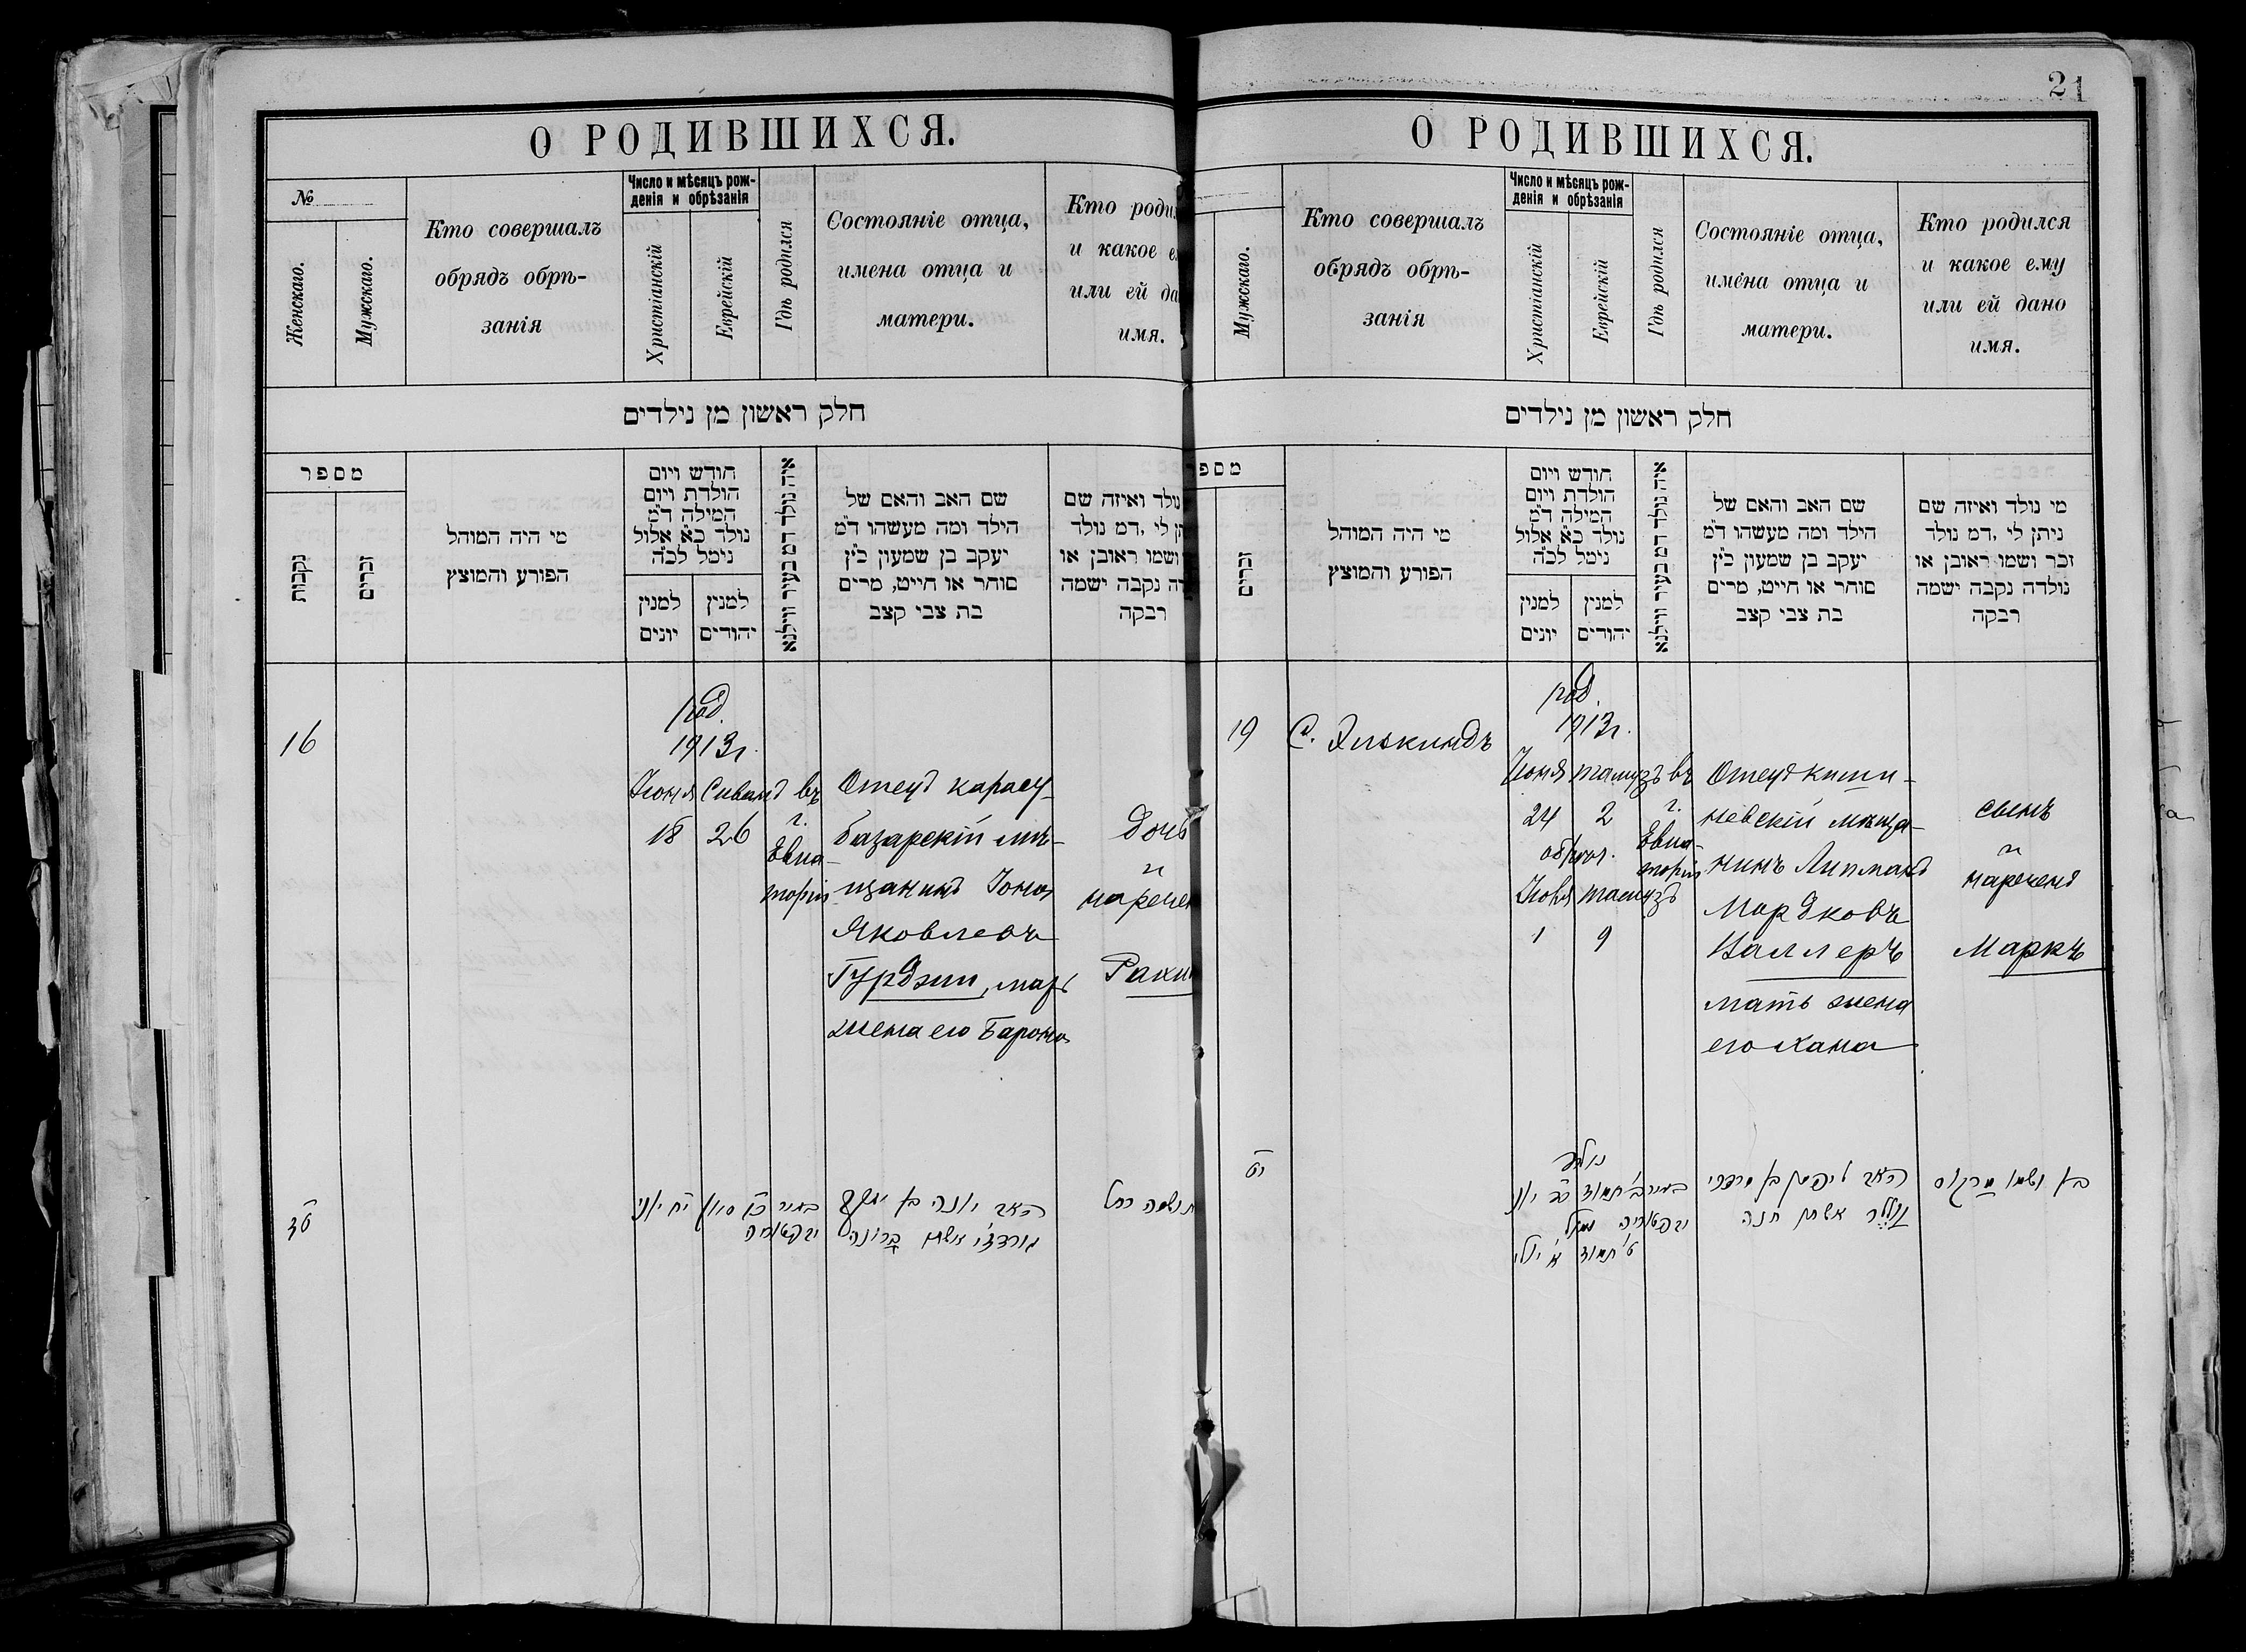 21
О РОДИВШИХСЯ.
№
Женскаго.
Мужскаго.
Кто совершалъ
обрядъ обрѣ-
занія
Число и мѣсяцъ рож-
денія и обрѣзанія
Христіанскій
Еврейскій
Гдѣ родился
Состояніе отца,
имена отца и
матери.
Кто роди
и какое е
или ей да
имя.
חלק ראשון מן נילדים
מספר
נקבות
זכרים
מי היה המוהל
הפורע והמוצץ
חודש ויום
הולדת ויום
המילה ד״מ
נולד כ״א אלול
נימל לכ״ה
למנין
יונים
למנין
יהודים
איה נולד דמ בעיר ווילנא
שם האב והאם של
הילד ומה מעשהו ד״מ
יעקב בן שמעון כ״ץ
סוחר או חייט, מרים
בת צבי קצב
נולד ואיזה שם
תן לי, דמ נולד
ושמו ראובן או
דה נקבה ישמה
רבקה
16
род.
1913г.
Іюня
18
Сиванъ
26
въ
г.
Евпа-
торіи
Отецъ карасу-
базарскій мѣ-
щанинъ Іона
Яковлевъ
Гурджи, мать
жена его Барона
дочь
и
наречен
Рахи
טז
י״ח יוני
כ״ו סיון
בעיר
יבפטוריה
האב יונה בן יעקב
גורדזי אשתו ברונה
ושמה רחל
О РОДИВШИХСЯ.
Мужскаго.
Кто совершалъ
обрядъ обрѣ-
занія
Число и мѣсяцъ рож-
денія и обрѣзанія
Христіанскій
Еврейскій
Гдѣ родился
Состояніе отца,
имена отца и
матери.
Кто родился
и какое ему
или ей дано
имя.
חלק ראשון מן נילדים
מספ
זכרים
מי היה המוהל
הפורע והמוצץ
חודש ויום
הולדת ויום
המילה ד״מ
נולד כ״א אלול
נימל לכ״ה
למנין
יונים
למנין
יהודים
איה נולד דמ בעיר ווילנא
שם האב והאם של
הילד ומה מעשהו ד״מ
יעקב בן שמעון כ״ץ
סוחר או חייט, מרים
בת צבי קצב
מי נולד ואיזה שם
ניתן לי, דמ נולד
זכר ושמו ראובן או
נולדה נקבה ישמה
רבקה
19
С. Элькиндъ
род.
1913г.
Іюня
24
тамузъ
2
обрѣз.
тамузъ
1
9
въ
г.
Евпа-
торіи
Отецъ киши-
невскій мѣща-
нинъ Липманъ
Мордковъ
Валлеръ
мать жена
его Хана
сынъ
и
нареченъ
Маркъ
יט
נולד
כ״ד יוני
ב׳ תמוז
בעיר
יבפטוריה
נימל
ט׳ תמוז
א׳ יולי
האב ליפמן בן מרדכי
וואללר אשתו חנה
בן ושמו מרקוס